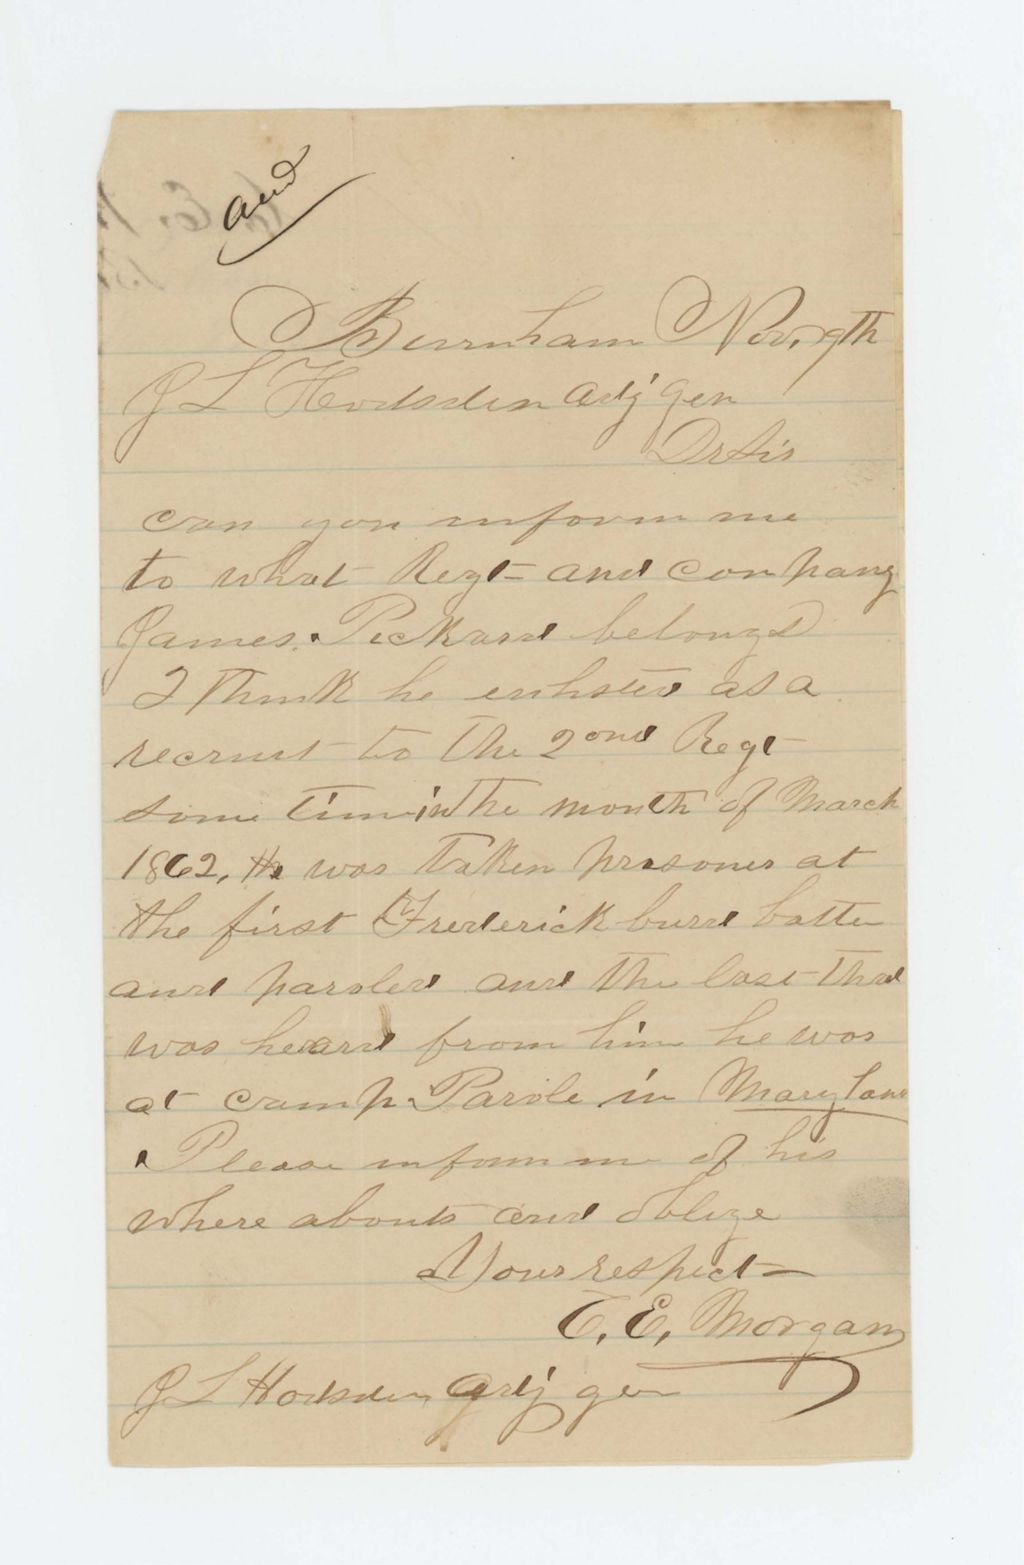 and
Burnham Nov. 9th
J L Hodsden Adj Gen
Dr Sir
can you inform me
to what Regt and company
James. Pickard belongs
I think he enlisted as a
recruit to the 2ond Regt
some time in the month of March
1862, He was taken prisoner at
the first Frederick burd batte
and paroled and the last that
was heard from him he was
at camp Parole in Maryland
Please inform me of his
where abouts and oblige
Your respect
C. E. Morgan
J L Hodsden, Adj gen